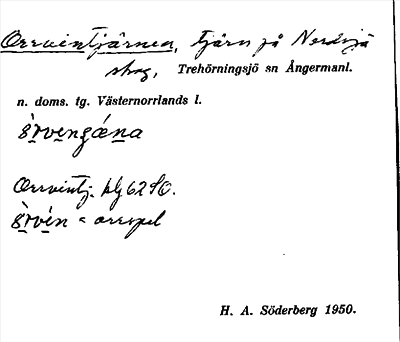 Orrvintjärnen, tjärn på Nordsjö
skog, Trehörningsjö sn Ångermanl.
n. doms. tg. Västernorrlands l.
Orrvintj. blg 6280.
= orrspel
H. A. Söderberg 1950.